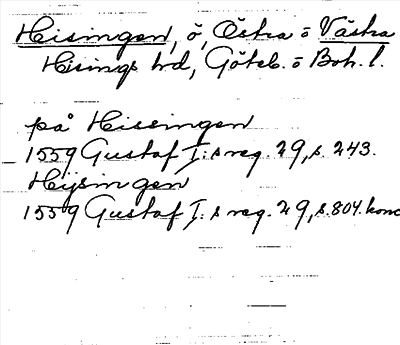 Hisingen, ö, Östra o Västra
Hisings hd, Göteb. o Boh. l.
på Hissingen
1559 Gustaf I:s reg. 29, s. 243.
Hijsingen
1559 Gustaf I:s reg. 29, s. 804. konc